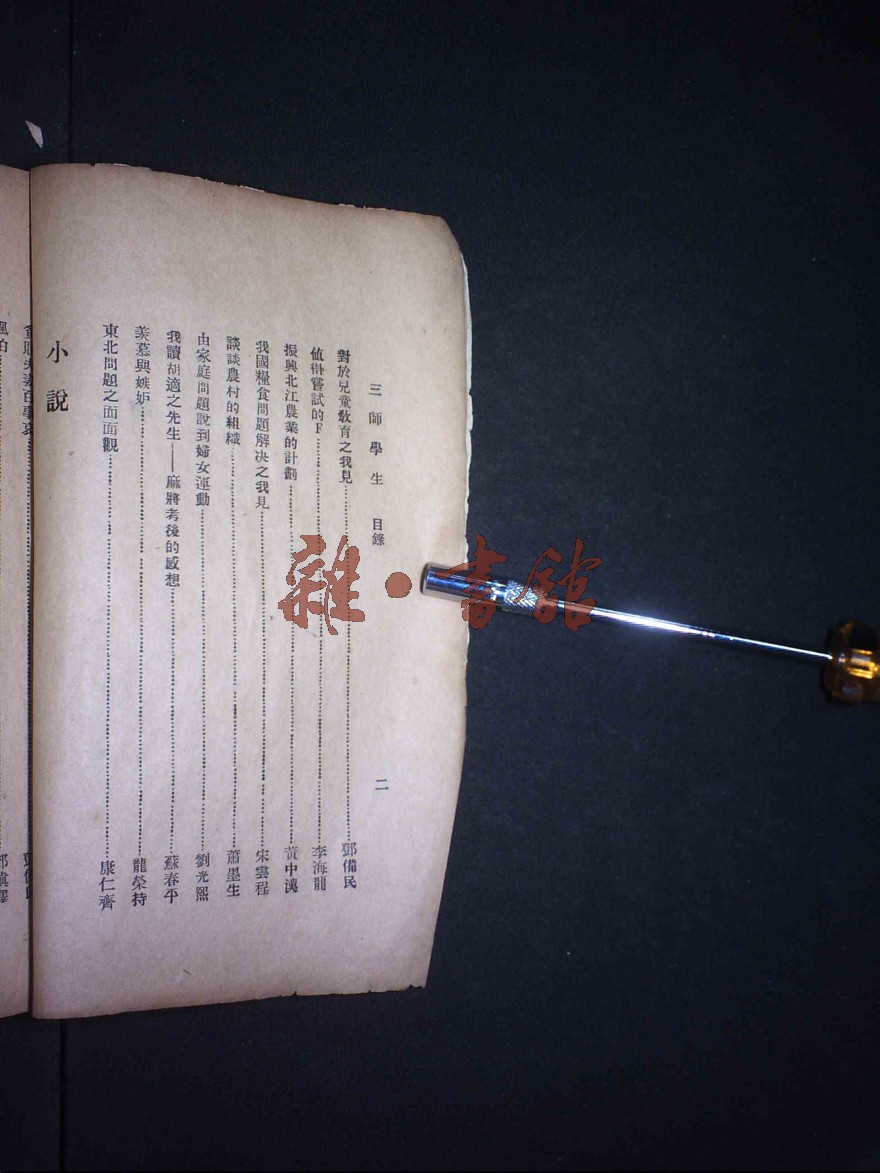 三師學生 目錄 二
對於兒童教育之我見 鄧備民
値得嘗試的F 李海龍
振興北江農業的計劃 黃中漢
我國糧食問題解决之我見 宋雲程
談談農村的組織 蕭墨生
由家庭問題說到婦女運動 劉光熙
我讀胡適之先生——麻將考後的感想 蘇春平
羨慕與嫉妒 龍榮持
東北問題之面面觀 康仁齊
小說
雜·書館